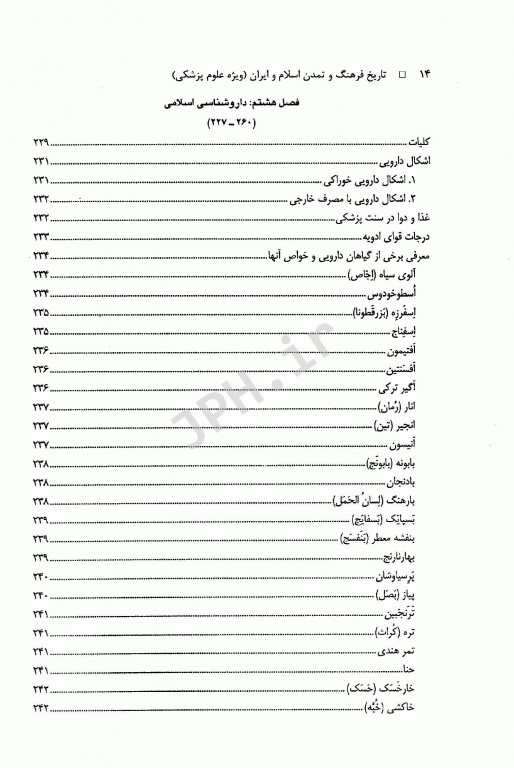 ۱۴ □ تاریخ فرهنگ و تمدن اسلام و ایران (ویژه علوم پزشکی)
فصل هشتم: داروشناسی اسلامی
(۲۶۰ - ۲۲۷)
کلیات ........ ۲۲۹
اشکال دارویی ........ ۲۳۱
۱. اشکال دارویی خوراکی ........ ۲۳۱
۲. اشکال دارویی با مصرف خارجی ........ ۲۳۲
غذا و دوا در سنت پزشکی ........ ۲۳۲
درجات قوای ادویه ........ ۲۳۳
معرفی برخی از گیاهان دارویی و خواص آنها ........ ۲۳۴
آلوی سیاه (اِجّاص) ........ ۲۳۴
اُسطوخودوس ........ ۲۳۴
اِسفَرزِه (بَزرقَطونا) ........ ۲۳۵
اِسفِناج ........ ۲۳۵
اَفتیمون ........ ۲۳۶
اَفسَنتین ........ ۲۳۶
اَگیر ترکی ........ ۲۳۶
انار (رُمان) ........ ۲۳۷
انجیر (تین) ........ ۲۳۷
اَنیسون ........ ۲۳۷
بابونه (بابونَج) ........ ۲۳۸
بادنجان ........ ۲۳۸
بارهنگ (لِسانُ الحَمَل) ........ ۲۳۸
بَسپایَک (بَسفایَج) ........ ۲۳۹
بنفشه معطر (بَنَفسَج) ........ ۲۳۹
بهارنارنج ........ ۲۳۹
پَرِسیاوشان ........ ۲۴۰
پیاز (بَصَل) ........ ۲۴۰
تَرَنجَبین ........ ۲۴۱
تره (کُراث) ........ ۲۴۱
تمر هندی ........ ۲۴۱
حنا ........ ۲۴۱
خارخَسَک (حَسَک) ........ ۲۴۲
خاکشی (خُبُّه) ........ ۲۴۲
JPH.ir